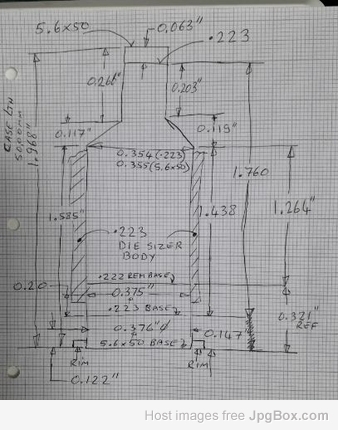 5.6x50
0.063"
.223
0.266"
0.203"
CASE LTH
50.0mm
1.968"
0.117"
0.119"
0.354 (.223)
0.355 (5.6x50)
1.760
1.585"
1.438
1.264"
.223
DIE SIZER
BODY
.222 REM BASE
0.20
0.375"
.223 BASE
0.321"
REF
0.376"φ
0.147
5.6x50 BASE
RIM
RIM
0.122"
Host images free JpgBox.com